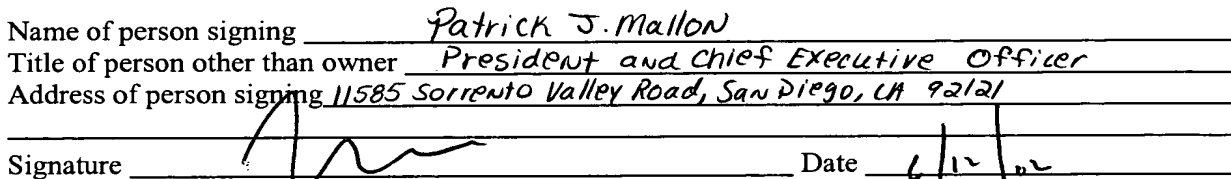 Name of person signing Patrick J. Mallon
Title of person other than owner President and Chief Executive Officer
Address of person signing 11585 Sorrento Valley Road, San Diego, CA 92121
Signature Date 6/12/02